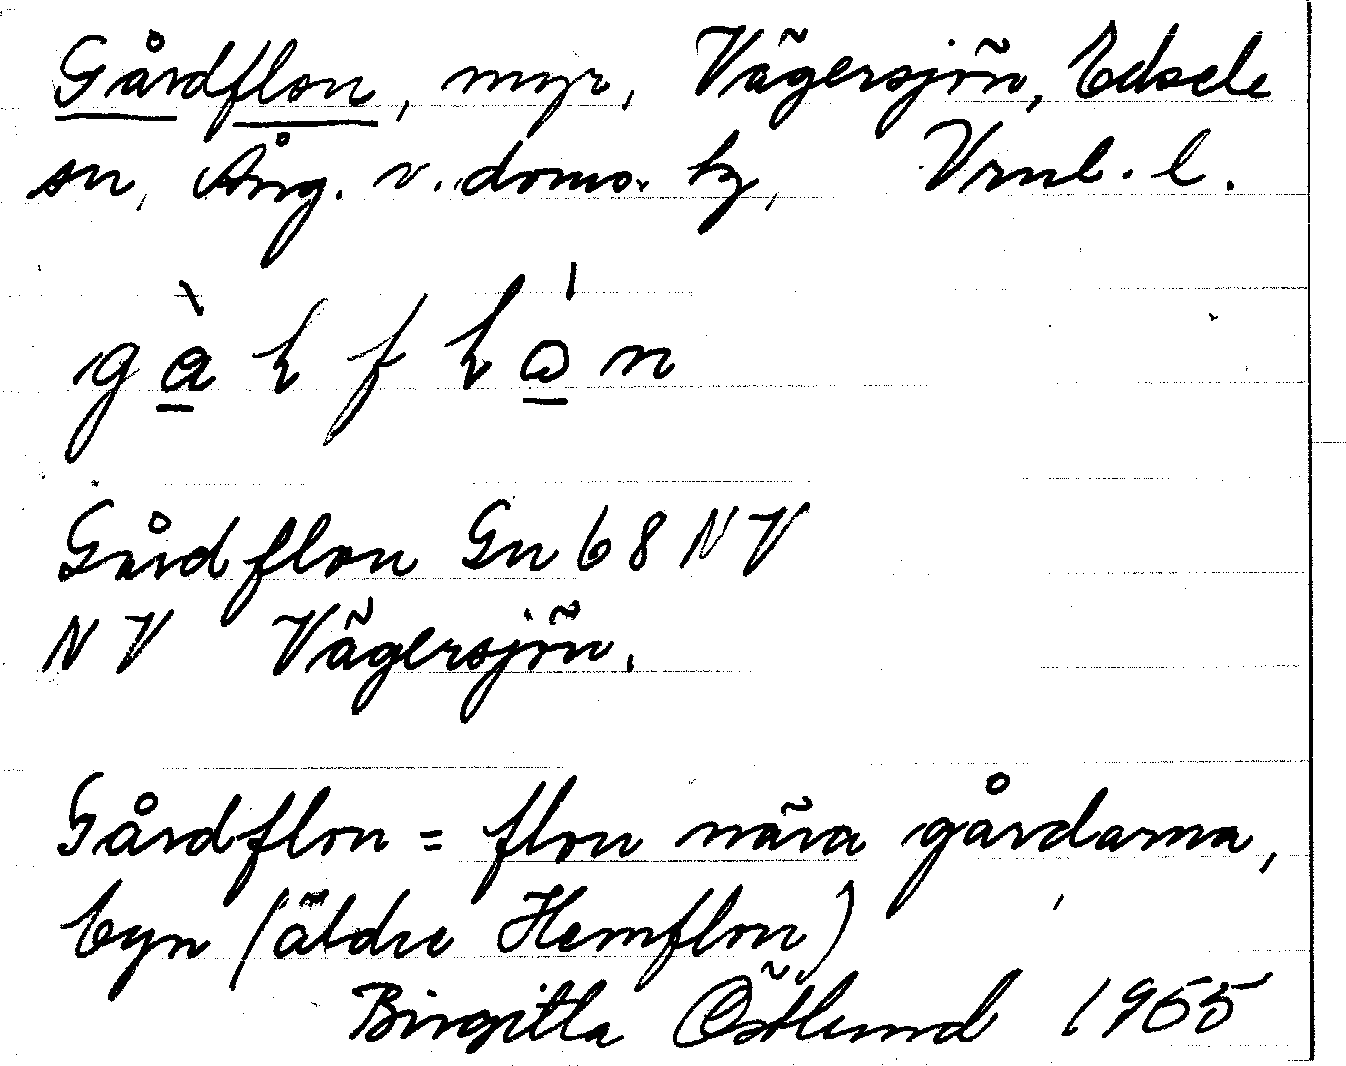 Gårdflon, myr, Vägersjön, Edsele
sn, Ång. v. doms. hg, Vrnl. l.
Gårdflon Gn 68 NV
NV Vägersjön.
Gårdflon = flon nära gårdarna,
byn (äldre Hemflon)
Birgitta Östlund 1955